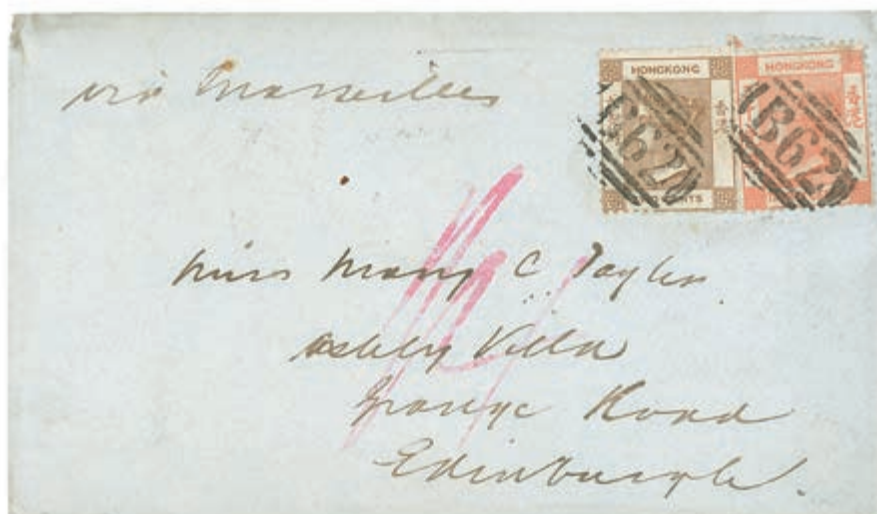 via Marseilles
HONGKONG
香港
CENTS
B62
HONGKONG
香港
B62
1/4
Miss Mary C Taylor
Ashley Villa
Grange Road
Edinburgh.